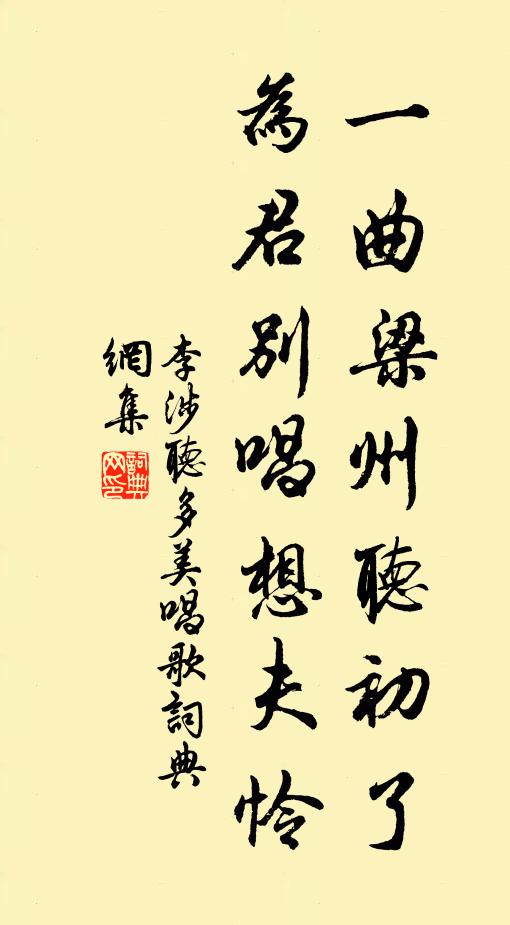 一曲梁州聽初了
為君別唱想夫怜
李涉聽多美唱歌詞典
網集
詞典網印